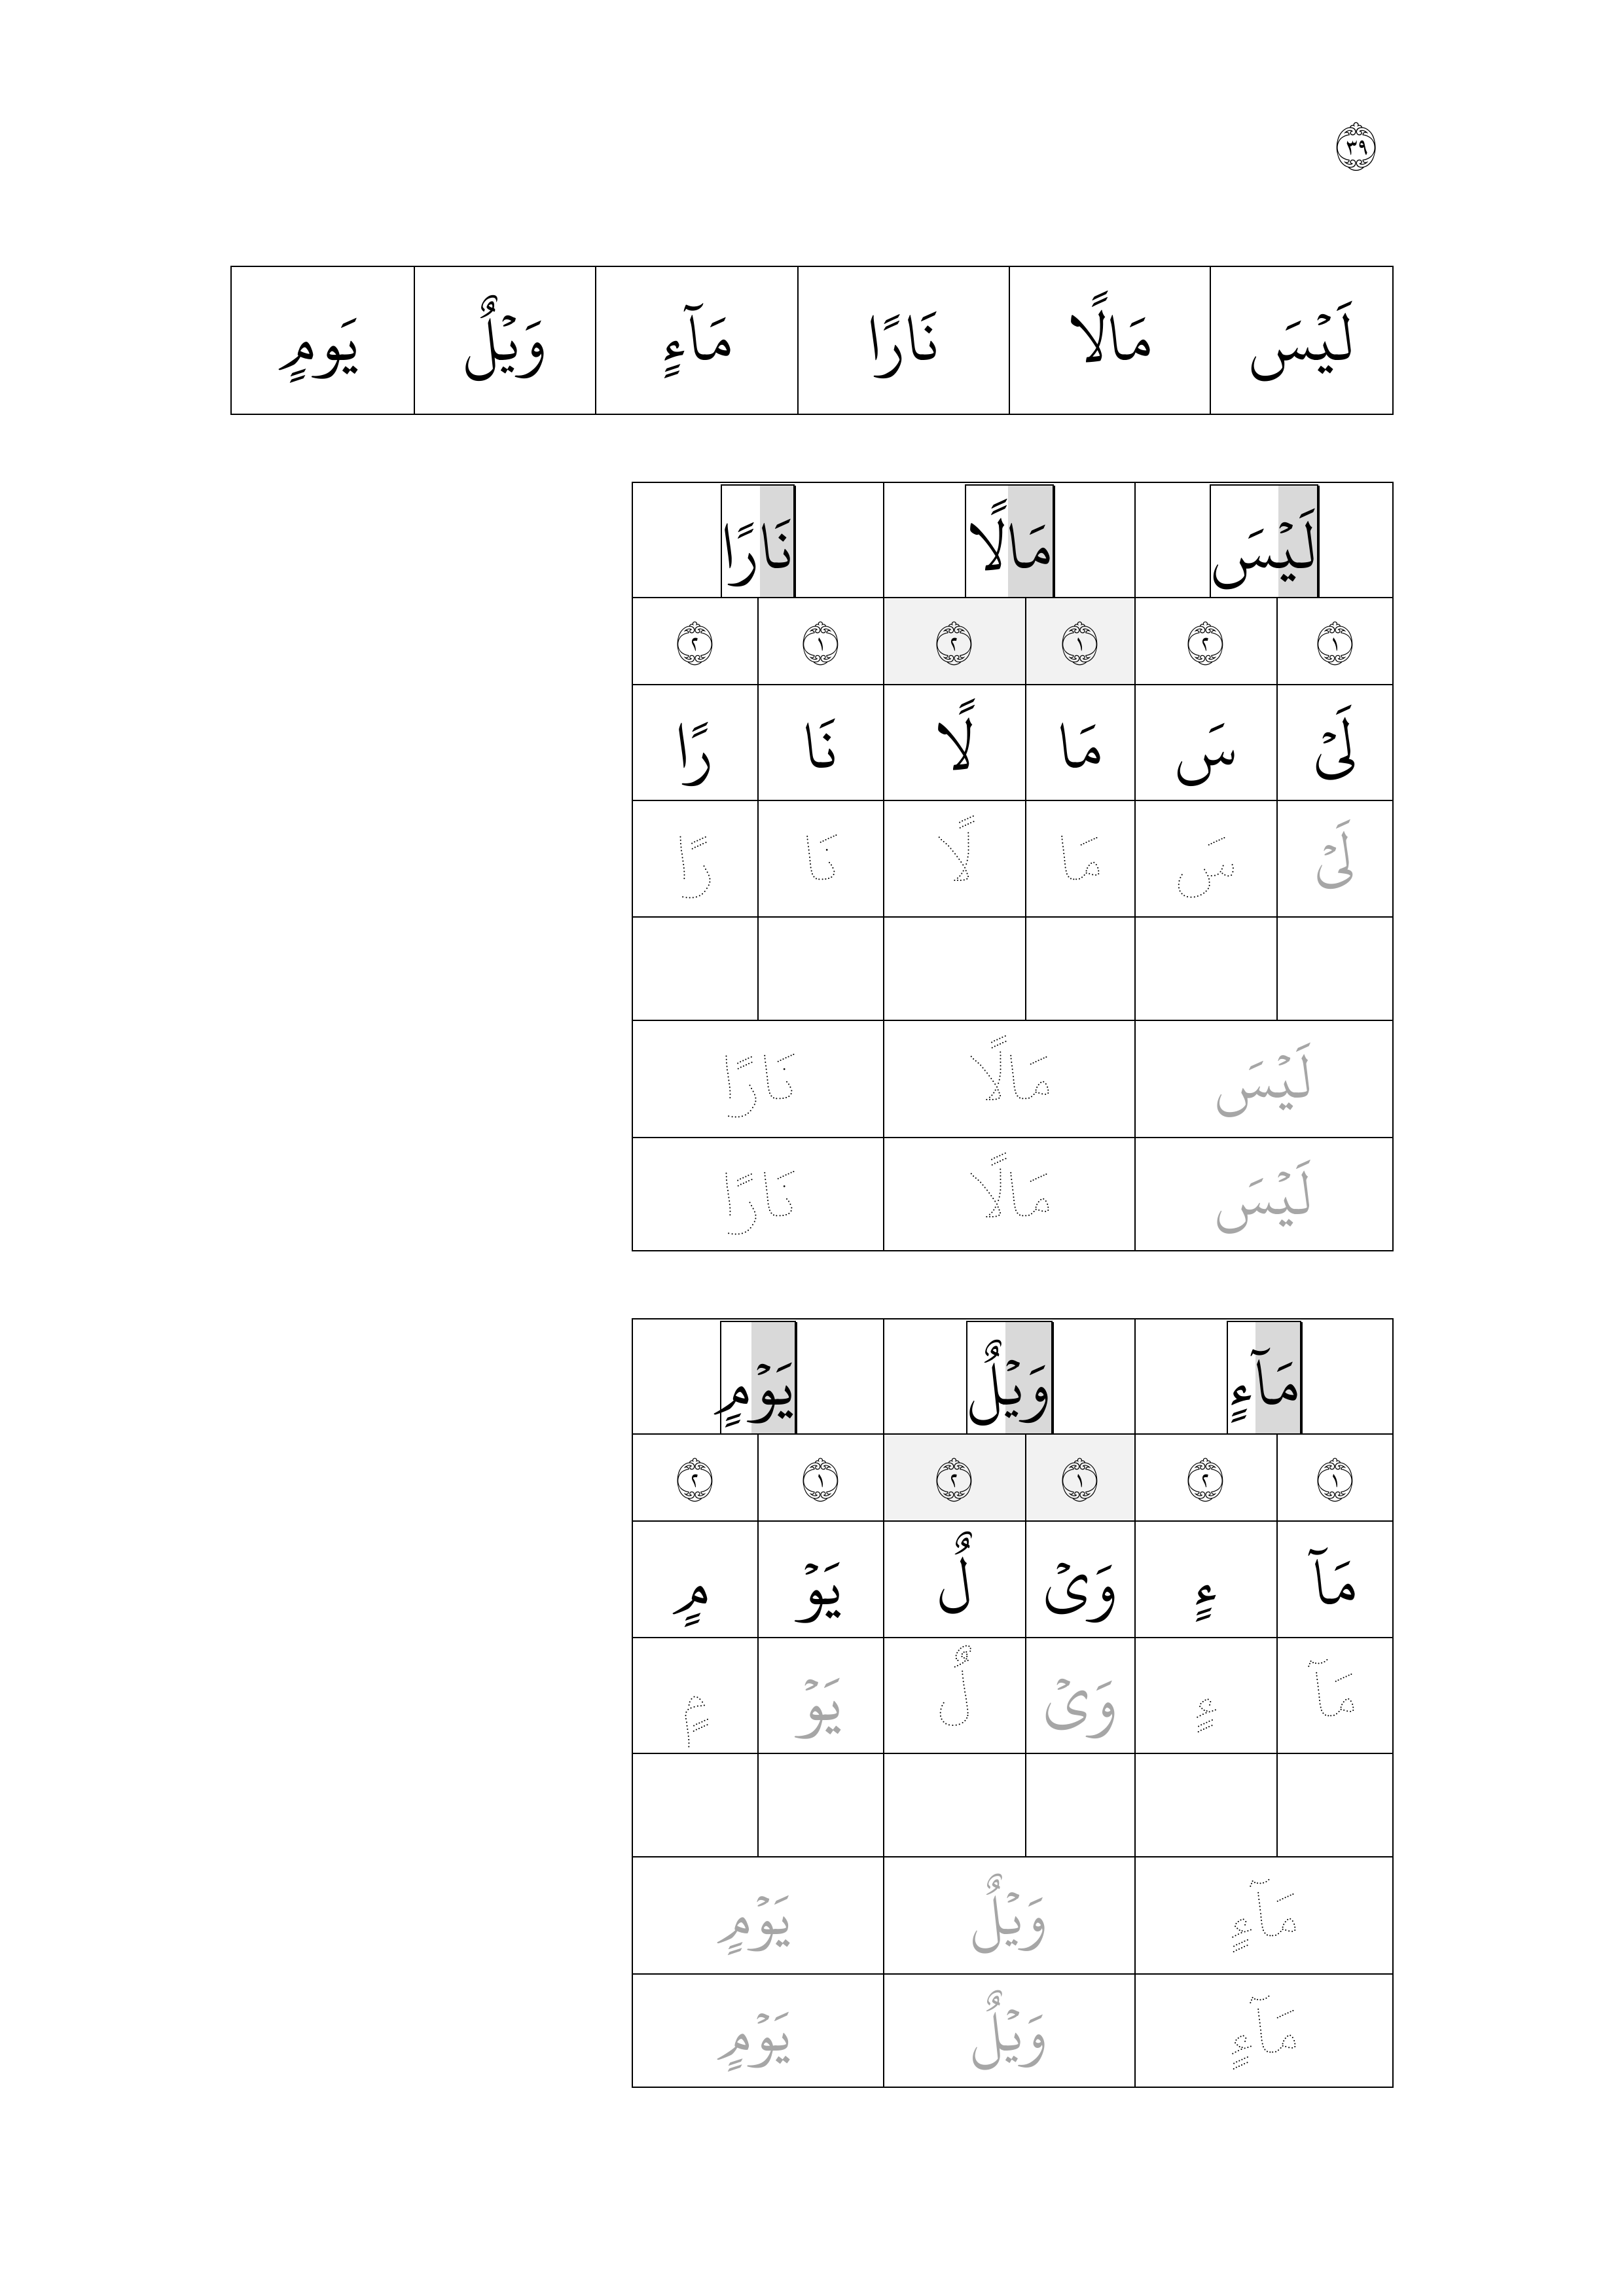 ٣٩
لَيۡسَ مَالًا نَارًا مَآءٍ وَيۡلٌ يَومٍ
لَيۡسَ مَالًا نَارًا
١ ٢ ١ ٢ ١ ٢
لَىۡ سَ مَا لًا نَا رًا
لَىۡ سَ مَا لًا نَا رًا
لَيۡسَ مَالًا نَارًا
لَيۡسَ مَالًا نَارًا
مَآءٍ وَيۡلٌ يَوۡمٍ
١ ٢ ١ ٢ ١ ٢
مَآ ءٍ وَىۡ لٌ يَوۡ مٍ
مَآ ءٍ وَىۡ لٌ يَوۡ مٍ
مَآءٍ وَيۡلٌ يَوۡمٍ
مَآءٍ وَيۡلٌ يَوۡمٍ